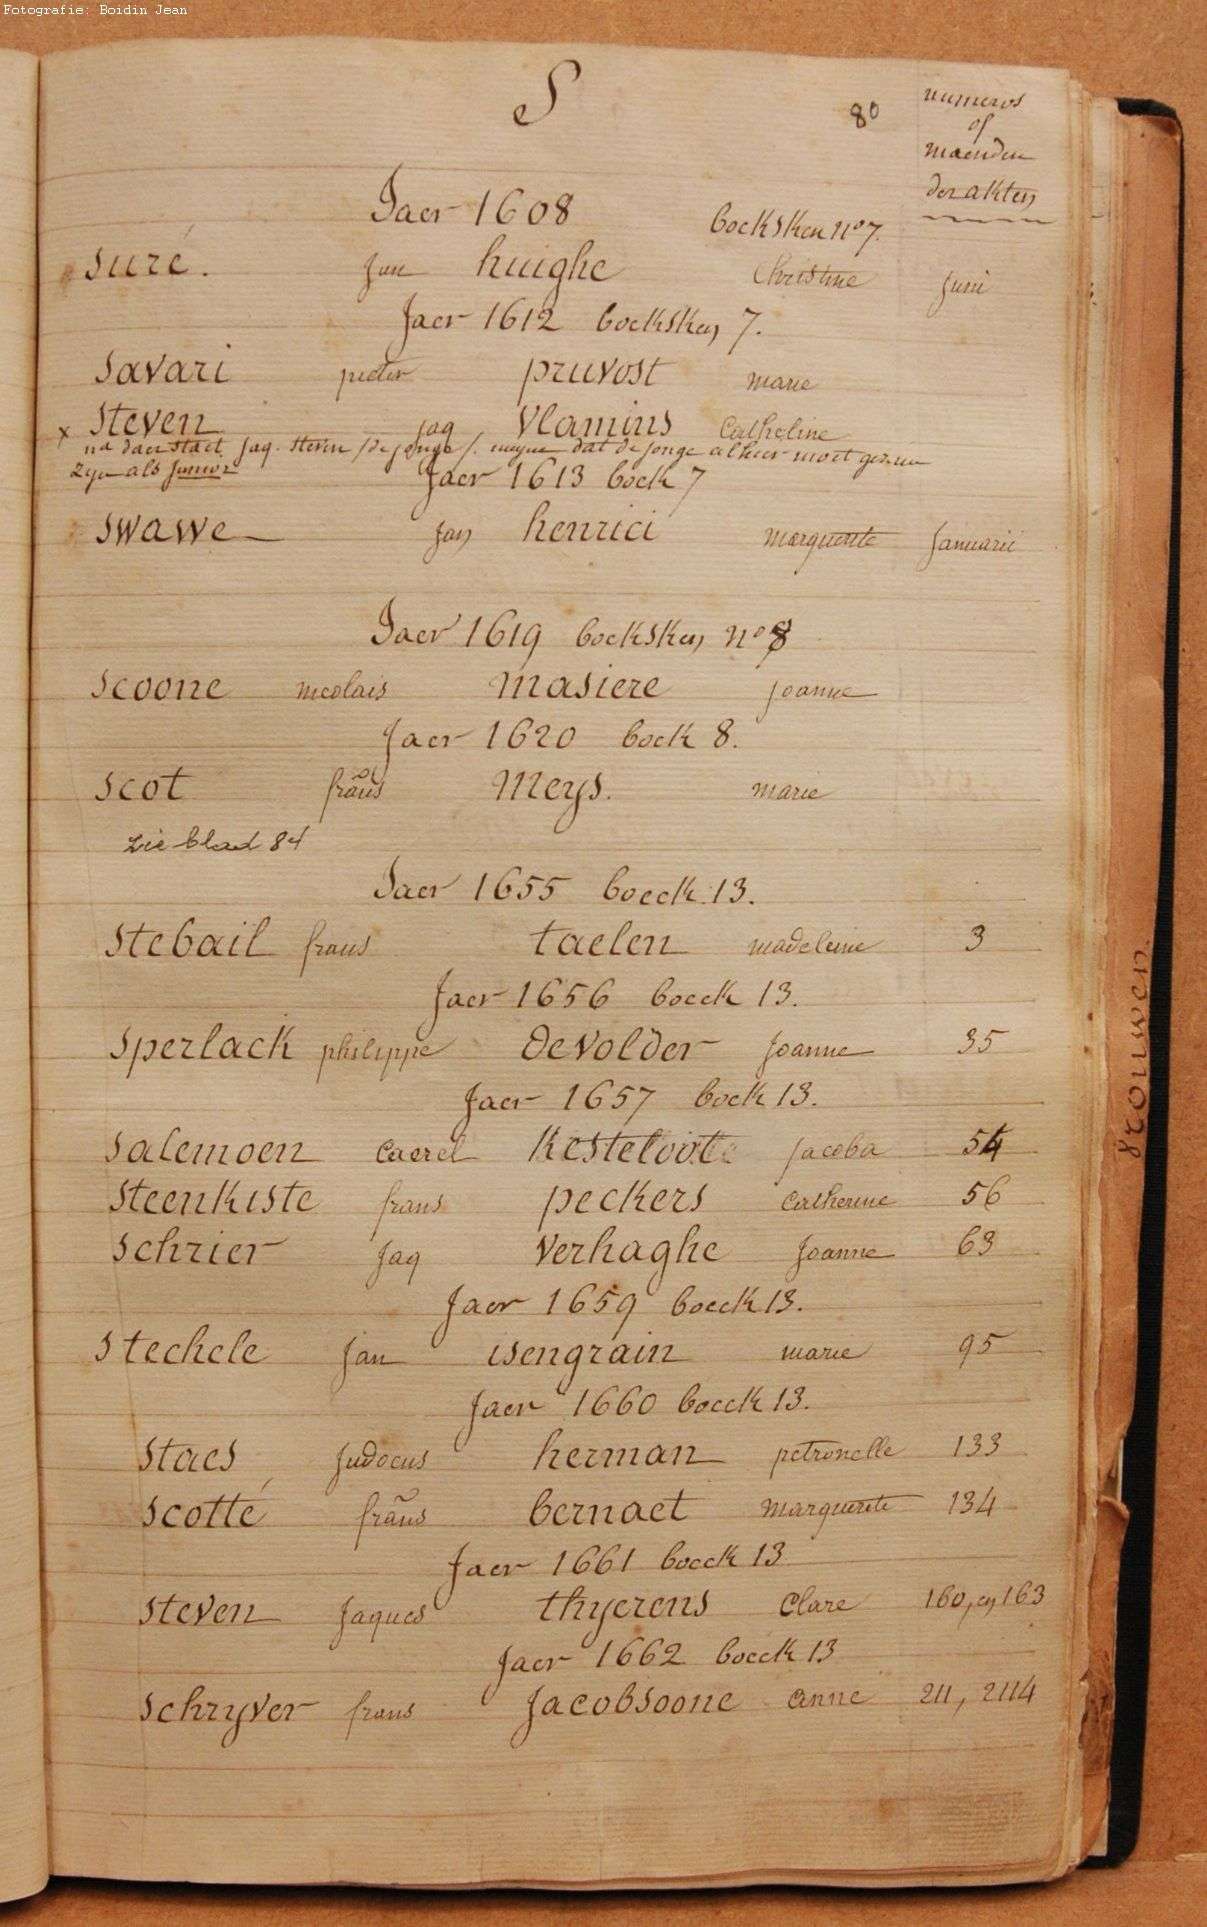 Fotografie: Boidin Jean
S
80
numeros
of
maenden
der akten
Jaer 1608 boeksken nº 7.
suré. Jan huighe Christine Juni
Jaer 1612 boeksken 7.
savari pieter pruvost marie
x steven jaq vlamins Catheline
na daer staet Jaq. Steven /de jonge/. meyne dat de jonge alhier moet genomen
zyn als Junior
Jaer 1613 boek 7
swawe Jan henrici marguerite Januarii
Jaer 1619 boeksken nº 8
scoone nicolais masiere joanne
Jaer 1620 boek 8.
scot frans Meys. marie
zie blad 84
Jaer 1655 boeck 13.
stebail frans taelen madeleine 3
Jaer 1656 boeck 13.
sperlack philippe devolder Joanne 35
Jaer 1657 boek 13.
salemoen Caerel Kesteloote Jacoba 54
steenkiste frans peckers Catherine 56
schrier Jaq verhaghe Joanne 63
Jaer 1659 boeck 13.
stechele Jan isengrain marie 95
Jaer 1660 boeck 13.
staes Judocus herman petronelle 133
scotté frans bernaet marguerite 134
Jaer 1661 boeck 13
steven Jaques thyerens Clare 160, en 163
Jaer 1662 boeck 13
schryver frans Jacobsoone anne 211, 2114
vrouwen